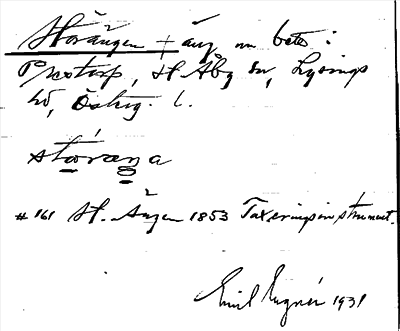 Storängen + äng nu bete i
Prästorp, St Åby sn, Lysings
hd, Östg. l.
stóraŋa
# 161 St. Ängen 1853 Taxeringsinstrument.
Emil Eugnér 1931